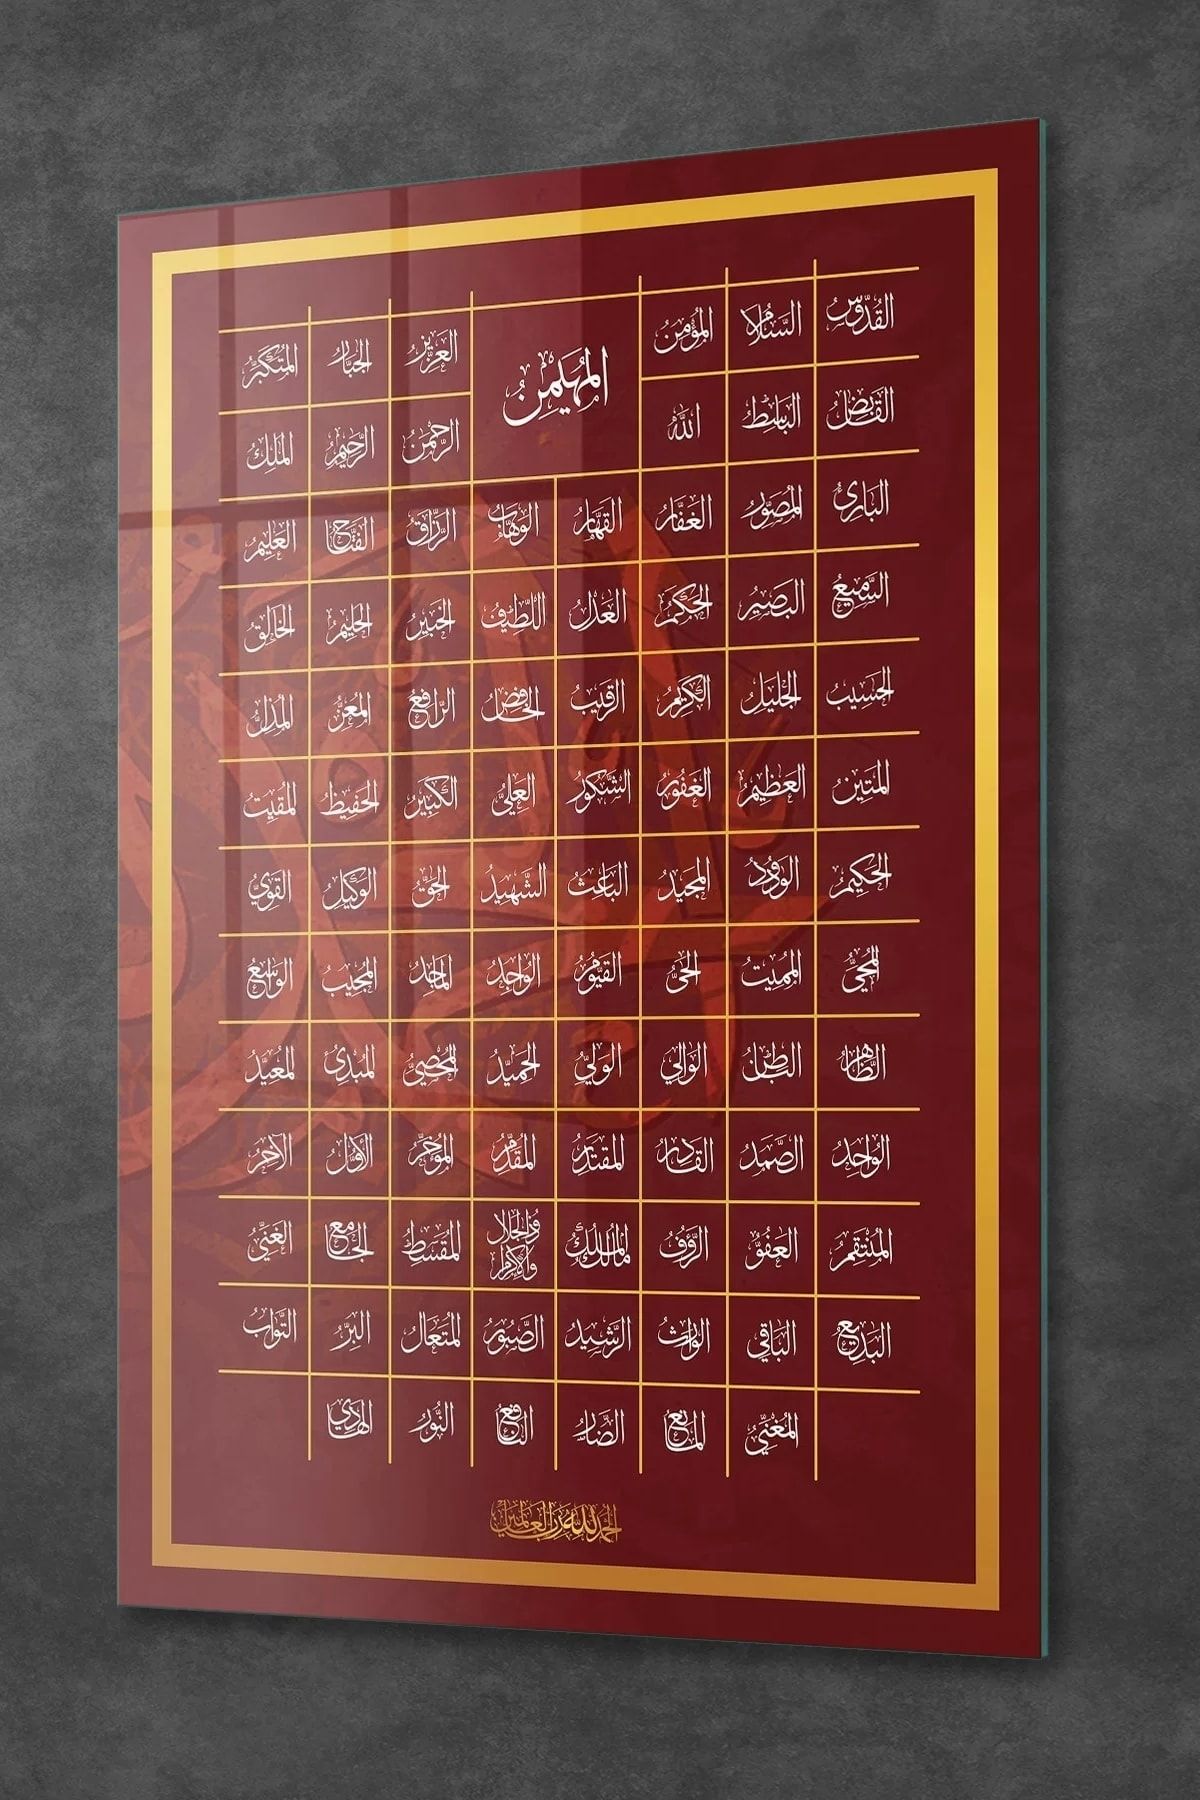 القُدُّوسُ السَّلَامُ المُؤْمِنُ المُهَيْمِنُ العَزِيزُ الجَبَّارُ المُتَكَبِّرُ
القَابِضُ البَاسِطُ اللهُ الرَّحْمنُ الرَّحِيمُ المَلِكُ
البَارِئُ المُصَوِّرُ الغَفَّارُ القَهَّارُ الوَهَّابُ الرَّزَّاقُ الفَتَّاحُ العَلِيمُ
السَّمِيعُ البَصِيرُ الحَكَمُ العَدْلُ اللَّطِيفُ الخَبِيرُ الحَلِيمُ الخَالِقُ
الحَسِيبُ الجَلِيلُ الكَرِيمُ الرَّقِيبُ الخَافِضُ الرَّافِعُ المُعِزُّ المُذِلُّ
المَتِينُ العَظِيمُ الغَفُورُ الشَّكُورُ العَلِيُّ الكَبِيرُ الحَفِيظُ المُقِيتُ
الحَكِيمُ الوَدُودُ المَجِيدُ البَاعِثُ الشَّهِيدُ الحَقُّ الوَكِيلُ القَوِيُّ
المُحْيِيُ المُمِيتُ الحَيُّ القَيُّومُ الوَاجِدُ المَاجِدُ المُجِيبُ الوَاسِعُ
الظَّاهِرُ البَاطِنُ الوَالِي الوَلِيُّ الحَمِيدُ المُحْصِيُ المُبْدِئُ المُعِيدُ
الوَاحِدُ الصَّمَدُ القَادِرُ المُقْتَدِرُ المُقَدِّمُ المُؤَخِّرُ الأَوَّلُ الآخِرُ
المُنْتَقِمُ العَفُوُّ الرَّؤُفُ مَالِكُ المُلْكِ ذُو الجَلَالِ وَالإِكْرَامِ المُقْسِطُ الجَامِعُ الغَنِيُّ
البَدِيعُ البَاقِي الوَارِثُ الرَّشِيدُ الصَّبُورُ المُتَعَالُ البَرُّ التَّوَّابُ
المُغْنِيُ المَانِعُ الضَّارُ النَّافِعُ النُّورُ الهَادِي
الحَمْدُ لِلَّهِ رَبِّ العَالَمِينَ